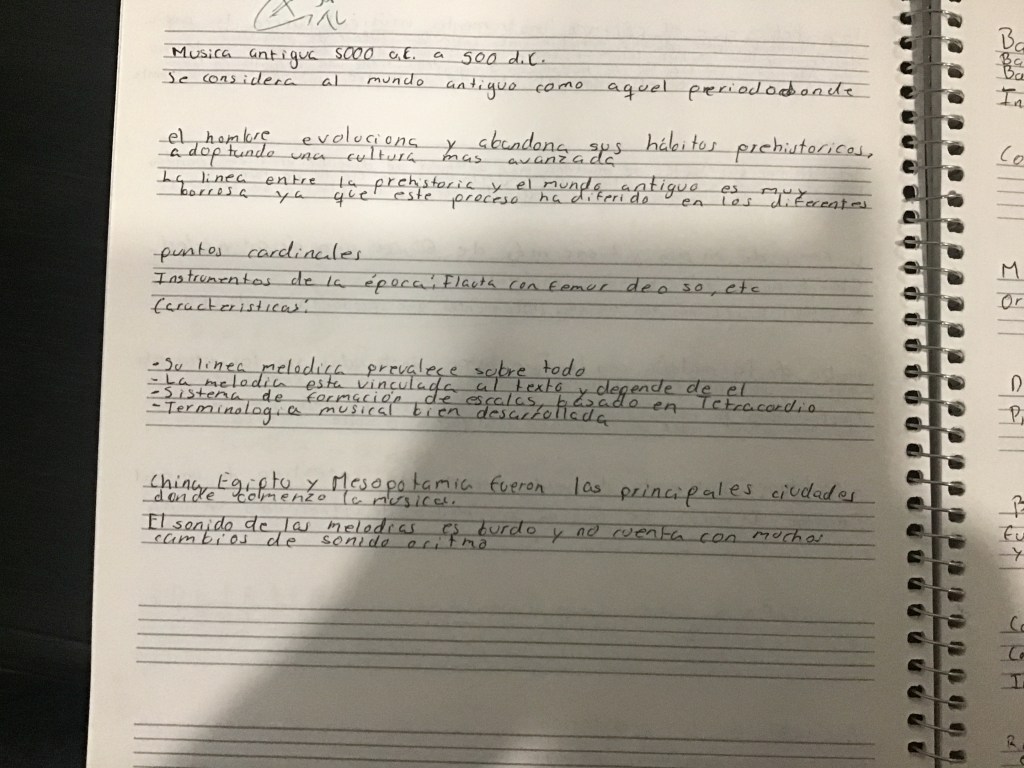 Musica antigua 5000 a.C. a 500 d.C.
Se considera al mundo antiguo como aquel periodo donde
el hombre evoluciona y abandona sus hábitos prehistoricos,
adoptando una cultura mas avanzada
La linea entre la prehistoria y el mundo antiguo es muy
borrosa ya que este proceso ha diferido en los diferentes
puntos cardinales
Instrumentos de la época: Flauta con femur de o so, etc
Caracteristicas:
-Su linea melodica prevalece sobre todo
-La melodia esta vinculada al texto y depende de el
-Sistema de formación de escalas, basado en Tetracordio
-Terminologia musical bien desarrollada
China, Egipto y Mesopotamia fueron las principales ciudades
donde comenzo la musica.
El sonido de las melodias es burdo y no cuenta con muchos
cambios de sonido o ritmo
Ba
Ba
Ba
In
Co
M
Or
D
P
B
Eu
y
Co
Co
In
R